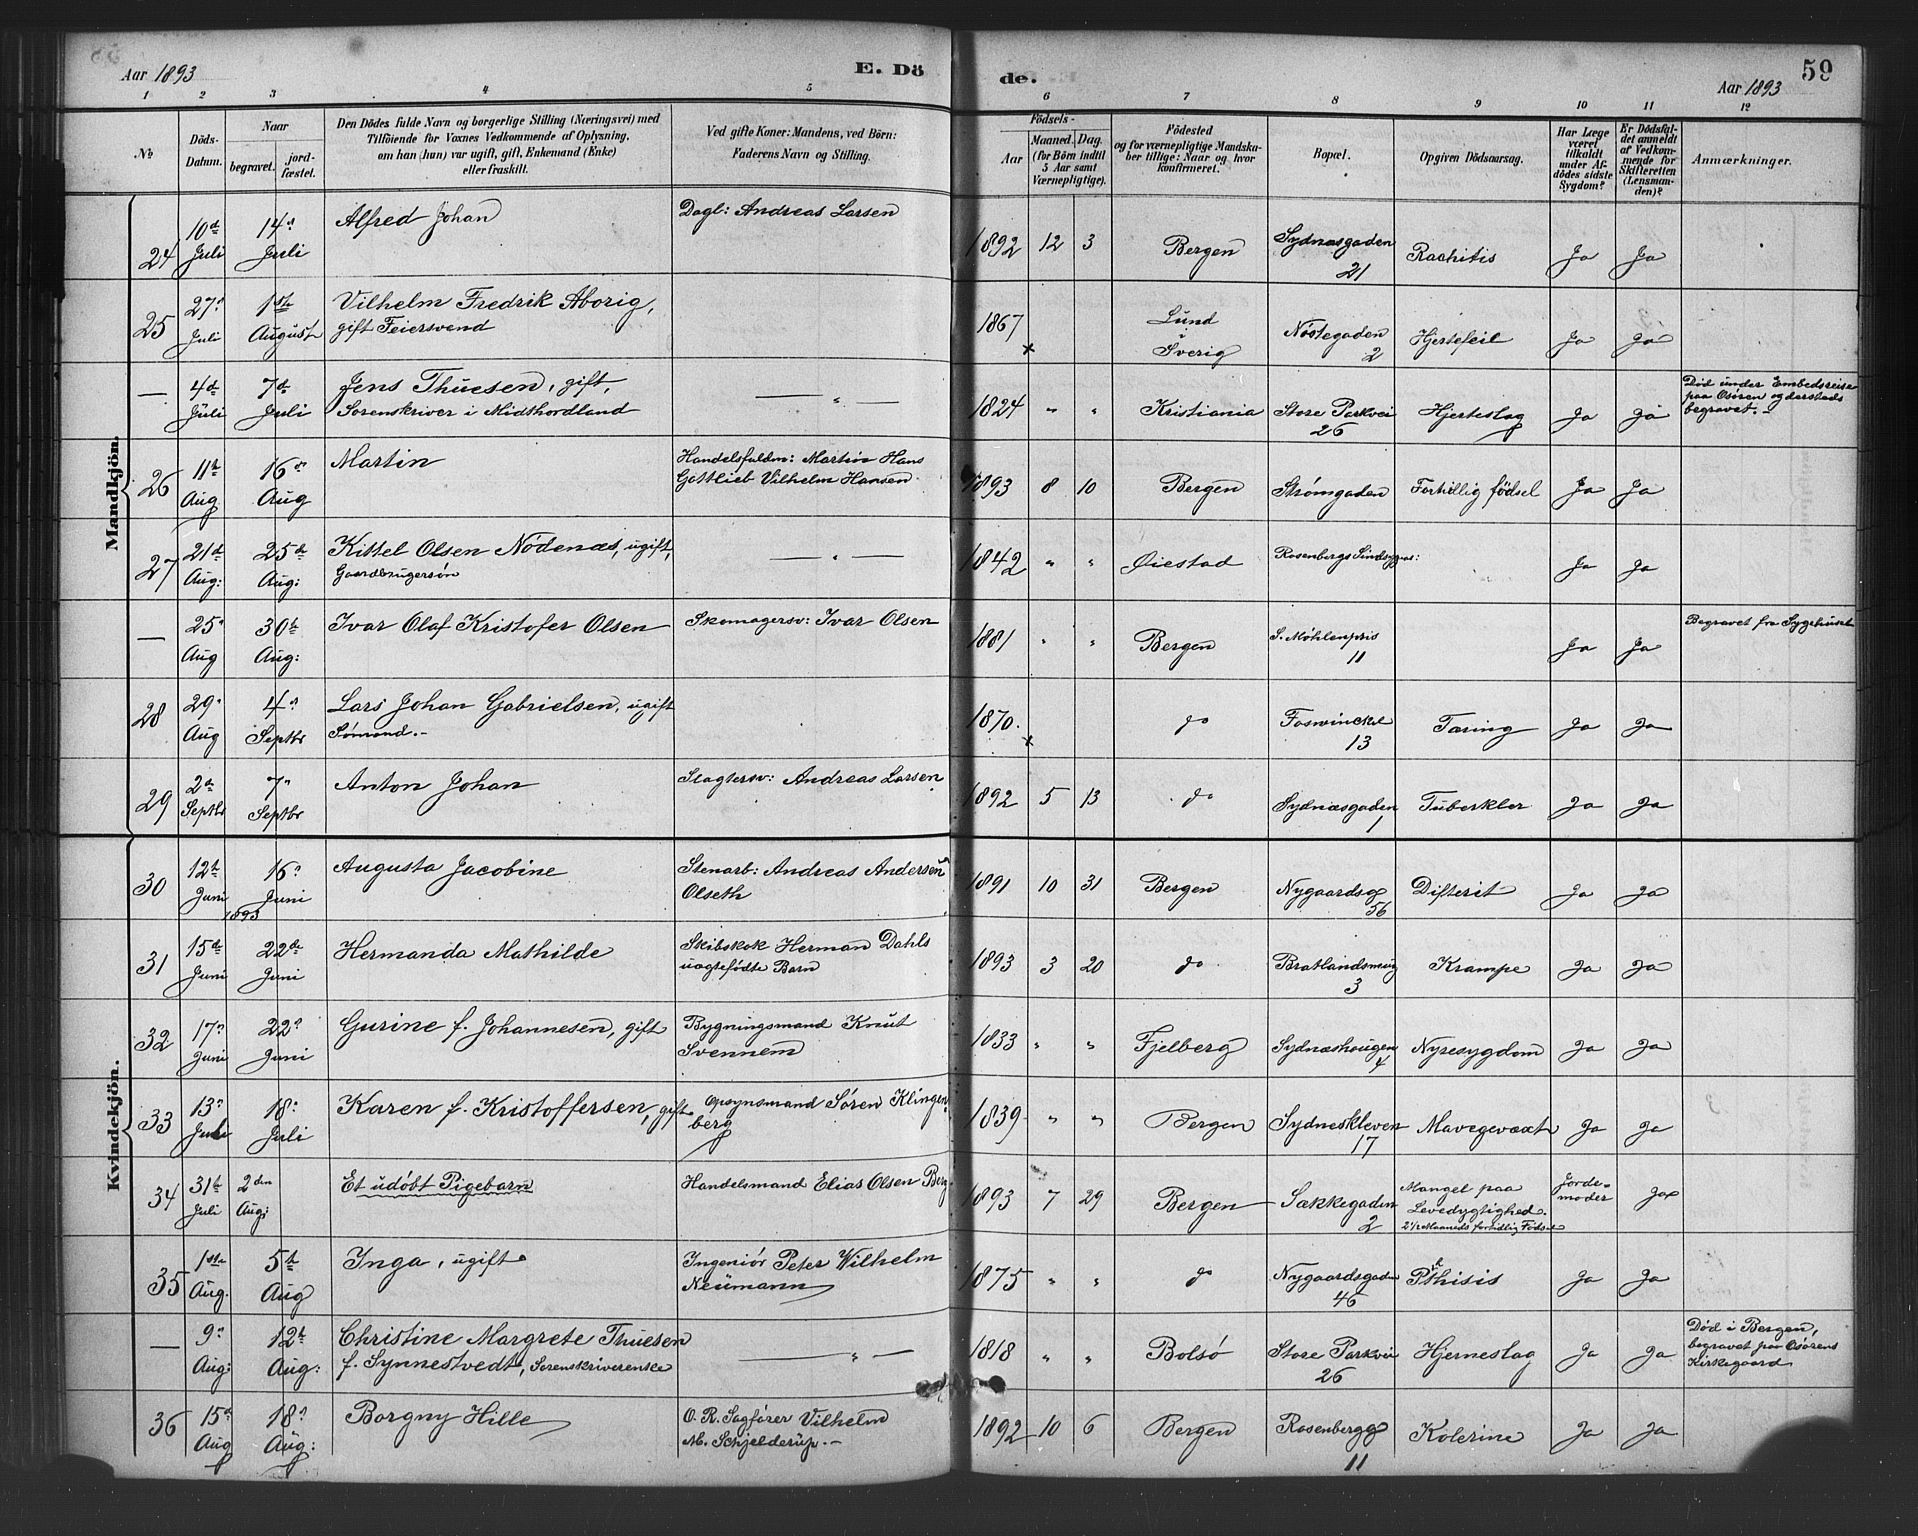 Aar 1893 E. Dö de. Aar 1893 59
1 2 3 4 5 6 7 8 9 10 11 12
No
Döds-Datum.
Naar begravet. jord-fæstet.
Den Dödes fulde Navn og borgerlige Stilling (Næringsvei) med
Tilföiende for Voxnes Vedkommende af Oplysning,
om han (hun) var ugift, gift, Enkemand (Enke)
eller fraskilt.
Ved gifte Koner: Mandens, ved Börn:
Faderens Navn og Stilling.
Födsels-
Aar Maaned. Dag.
(for Börn indtil 5 Aar samt Værnepligtige).
Födested
og for værnepligtige Mandska-
ber tillige: Naar og hvor
konfirmeret.
Bopæl.
Opgiven Dödsaarsag.
Har Læge været tilkaldt under Afdödes sidste Sygdom?
Er Dödsfaldet anmeldt af Vedkommende for Skifteretten (Lensmanden)?
Anmærkninger.
Mandkjön.
24 10d Juli 14d Juli Alfred Johan Dagl: Andreas Larsen 1892 12 3 Bergen Sydnæsgaden 21 Rachitis Ja Ja
25 27d Juli 1ste August Vilhelm Fredrik Aborig, gift Feiersvend 1867 x Lund i Sverig Nöstegaden 2 Hjertefeil Ja Ja
— 4d Juli 7d Juli Jens Thuesen, gift, Sorenskriver i Midthordland — " — 1824 " " Kristiania Store Parkvei 26 Hjerteslag Ja Ja Död under Embedsreise paa Osören og dersteds begravet.-
26 11t Aug 16d Aug Martin Handelsfuldm: Martin Hans Gottlieb Vilhelm Hansen 1893 8 10 Bergen Strömgaden Fortidlig födsel Ja Ja
27 21d Aug: 25d Aug: Kittel Olsen Nödenæs, ugift, Gaardbrugersön — " — 1842 " " Öiestad Rosenbergs Sindsygeas: Ja Ja
— 25d Aug 30t Aug: Ivar Olaf Kristofer Olsen Skomagersv: Ivar Olsen 1881 " " Bergen S. Möhlenpris 11 Ja Ja Begravet fra Sygehuset
28 29d Aug 4d Septbr Lars Johan Gabrielsen, ugift Sömand.- 1870. x do Foswinckel 13 Tæring Ja Ja
29 2d Septbr 7d Septbr Anton Johan Slagtersv: Andreas Larsen 1892 5 13 do Sydnæsgaden 1 Tuberkler Ja Ja
Kvindekjön.
30 12t Juni 1893 16d Juni Augusta Jacobine Stenarb: Andreas Andersen Olseth 1891 10 31 Bergen Nygaardsg 56 Difterit Ja Ja
31 15de Juni 22de Juni Hermanda Mathilde Skibskok Herman Dahls uægtefödte Barn 1893 3 20 do Bratlandsmug 3 Krampe Ja Ja
32 17d Juni 22d Juni Gurine f. Johannesen, gift Bygningsmand Knut Svennem 1833 " " Fjelberg Sydnæshougen 4 Nyresygdom Ja Ja
33 13d Juli 18d Juli Karen f. Kristoffersen, gift Opsynsmand Sören Klingenberg 1839 " " Bergen Sydneskleven 17 Mavegevæxt Ja Ja
34 31te Juli 2den Aug: Et udöbt Pigebarn Handelsmand Elias Olsen Berg 1893 7 29 Bergen Sækkegaden 2 Mangel paa Levedygtighed. 2½ Maaneds fortidlig Födsel Jordemoder Ja
35 1ste Aug. 5t Aug Inga, ugift Ingeniör Peter Wilhelm Neümann 1875 " " do Nygaardsgaden 46 Pthisis Ja Ja
— 9d Aug: 12t Aug: Christine Margrete Thuesen f. Synnestvedt, Sorenskriverenke — " — 1818 " " Bolsö Store Parkvei 26 Hjerneslag Ja Ja Död i Bergen, begravet paa Osörens Kirkegaard
36 15d Aug 18d Aug: Borgny Hille O. R. Sagförer Vilhelm M. Schjelderup.- 1892 10 6 Bergen Rosenbergg 11 Kolerine Ja Ja